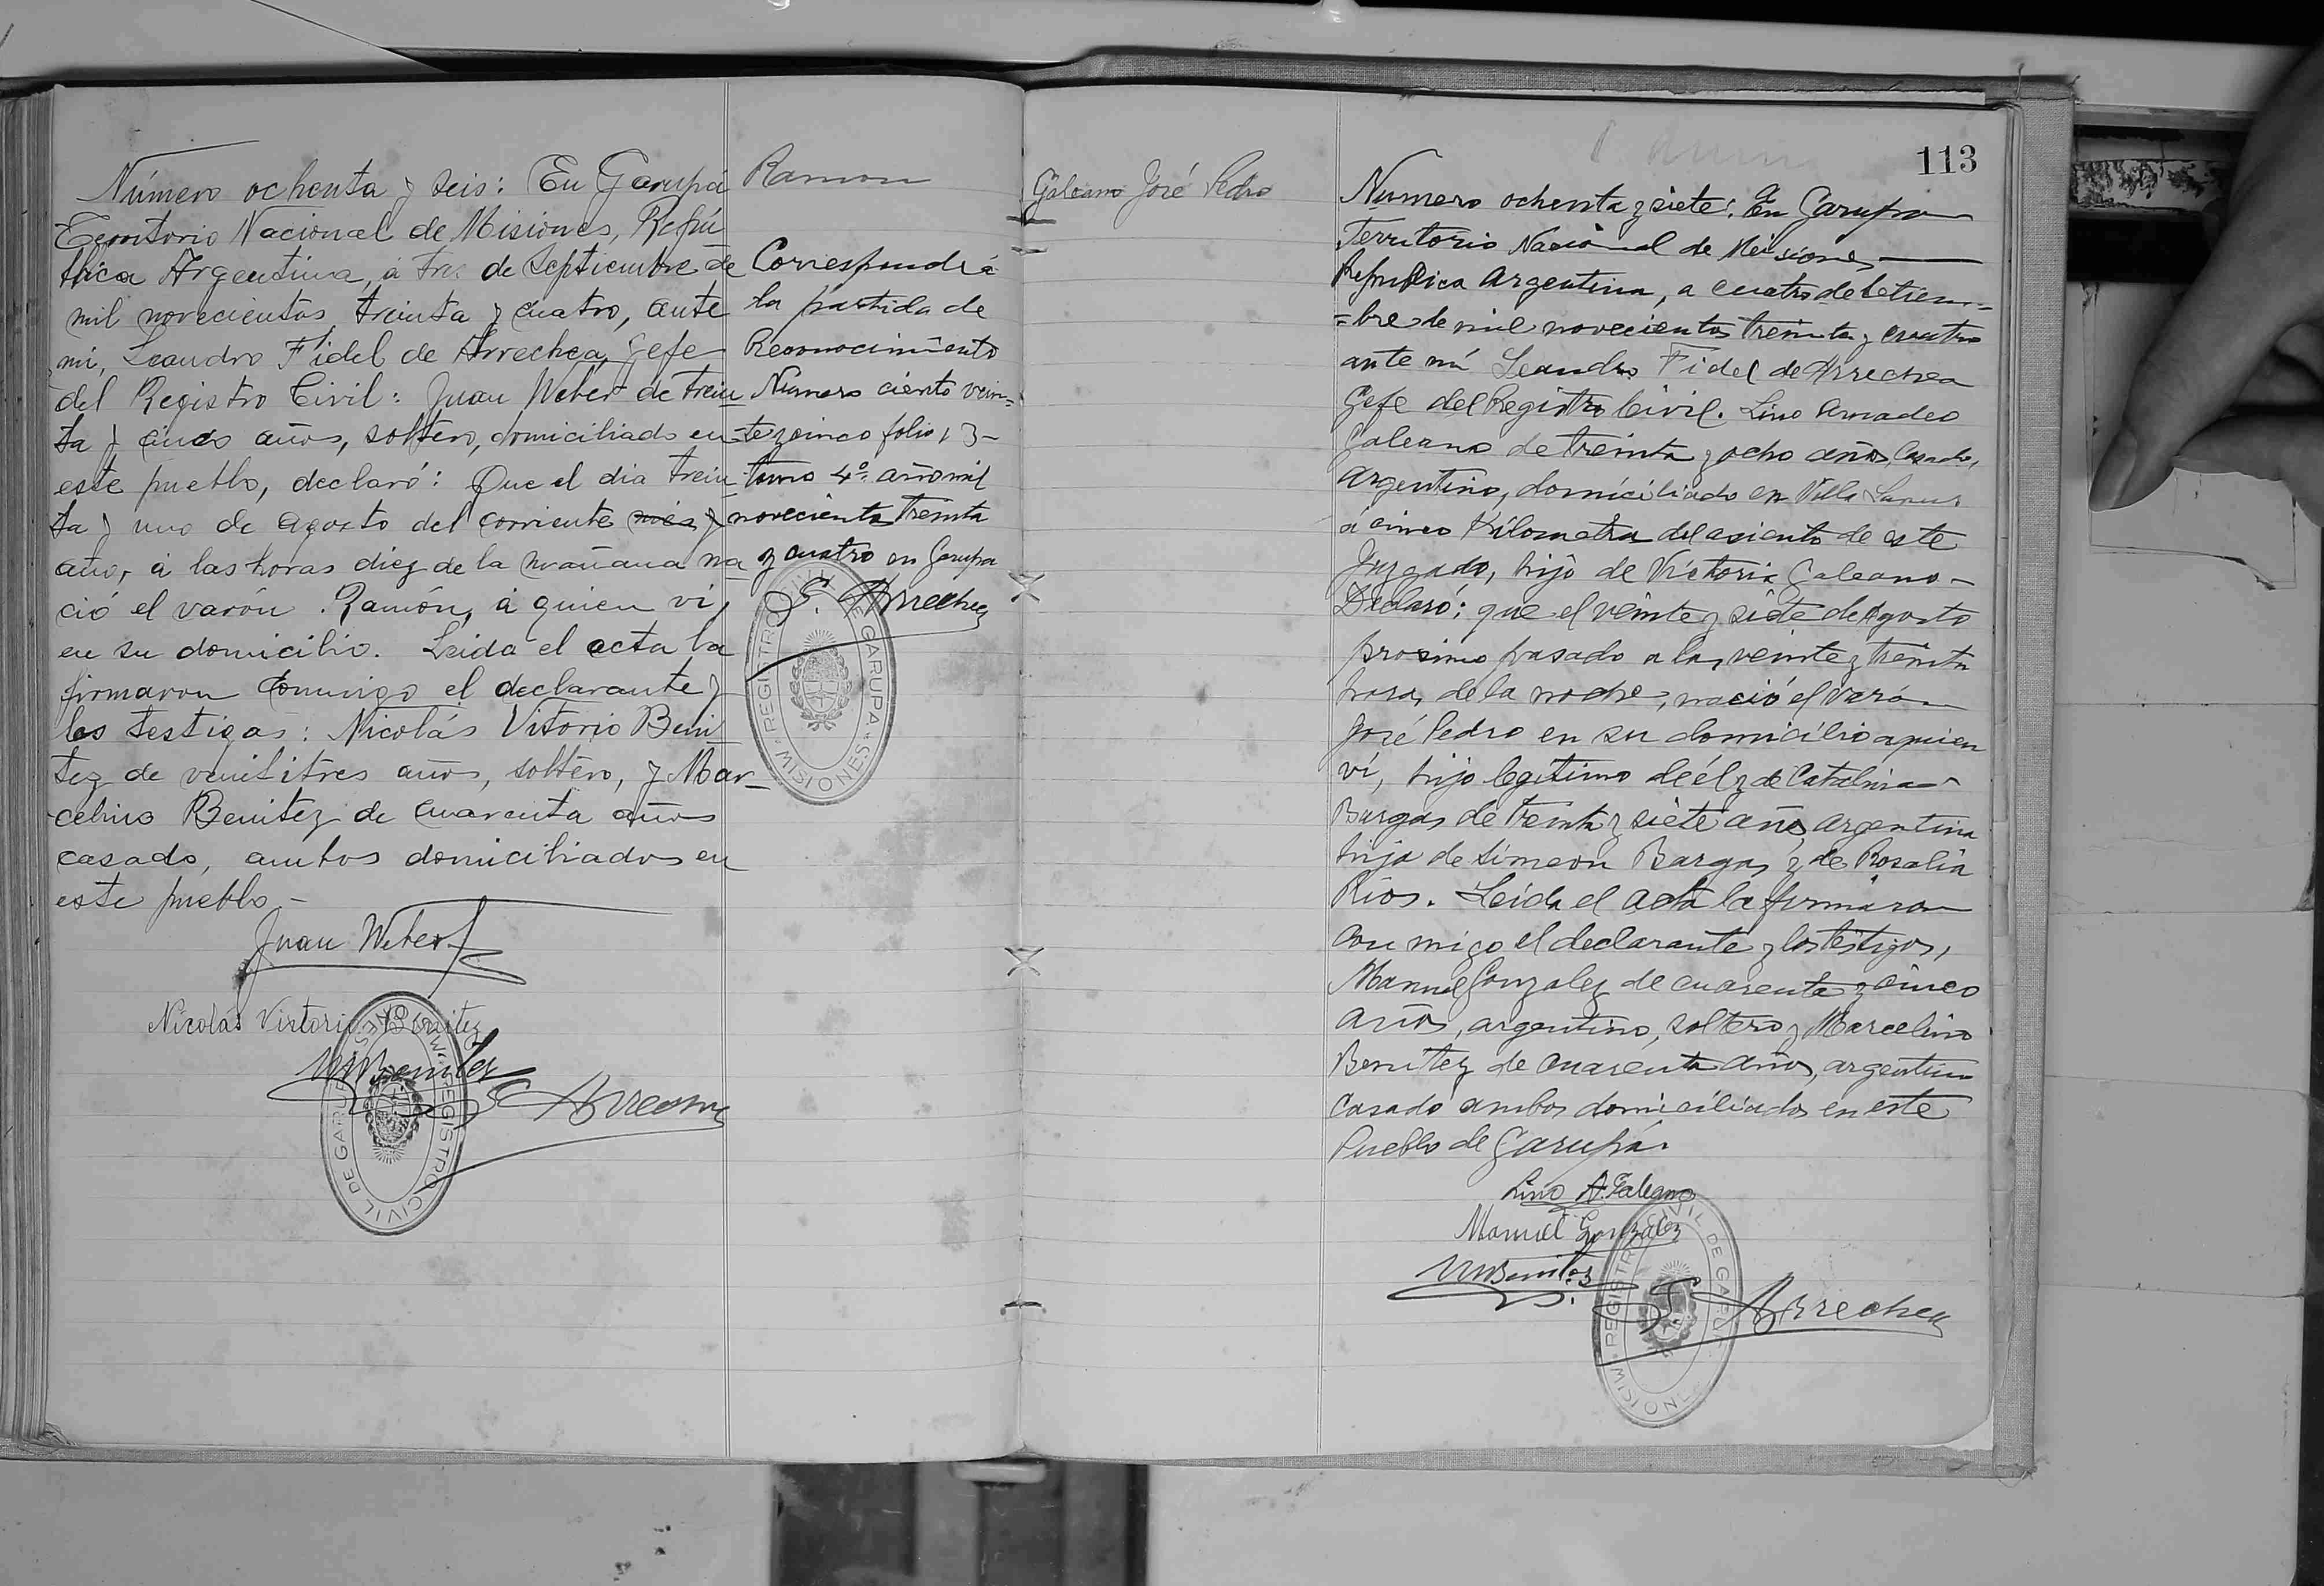 Número ochenta y seis: En Garupá
Territorio Nacional de Misiones, Repú
blica Argentina, á tres de Septiembre de
mil novecientos treinta y cuatro, ante
mi, Leandro Fidel de Arrechea Gefe
del Registro Civil: Juan Weber de trein
ta y cinco años, soltero, domiciliado en
este pueblo, declaró: Que el dia trein
ta y uno de Agosto del corriente mes y
año, á las horas diez de la mañana na
ció el varón. Ramón, á quien vi,
en su domicilio. Leida el acta la
firmaron conmigo el declarante y
los testigos: Nicolás Vitorio Beni
tez de veintitres años, soltero, y Mar-
celino Benitez de cuarenta años
casado, ambos domiciliados en
este pueblo -
Juan Weber
Nicolás Victorio Benitez
MBenitez
Arrechea
REGISTRO CIVIL DE GARUPA MISIONES
Ramon
Corresponde á
la partida de
Reconocimiento
Numero ciento vein=
te y cinco folio 13-
tomo 4º año mil
novecientos treinta
y cuatro en Garupa
Arrechea
REGISTRO CIVIL DE GARUPA MISIONES
113
Galeano José Pedro
Numero ochenta y siete: En Garupa
Territorio Nacional de Misiones
Republica Argentina, a cuatro de Setiem=
=bre de mil novecientos treinta y cuatro
ante mí Leandro Fidel de Arrechea
Gefe del Registro Civil. Lino Amadeo
Galeano de treinta y ocho años, Casado,
Argentino, domiciliado en Villa Lanus
á cinco Kilometros del asiento de este
Juzgado, hijo de Victoria Galeano -
Declaró: que el veinte y siete de Agosto
prosimo pasado a las veinte y treinta
horas de la noche, nació el varón
José Pedro en su domicilio a quien
ví, hijo legítimo de él y de Catalina
Bargas de treinta y siete años argentina
hija de Simeon Bargas y de Rosalia
Rios. Leida el acta la firmaron
con migo el declarante y los testigos,
Manuel Gonzalez de cuarenta y cinco
años, argentino, soltero y Marcelino
Benitez de cuarenta años, argentino
casado ambos domiciliados en este
Pueblo de Garupá.
Lino A. Galeano
Manuel Gonzalez
MBenitez
Arrechea
REGISTRO CIVIL DE GARUPA MISIONES